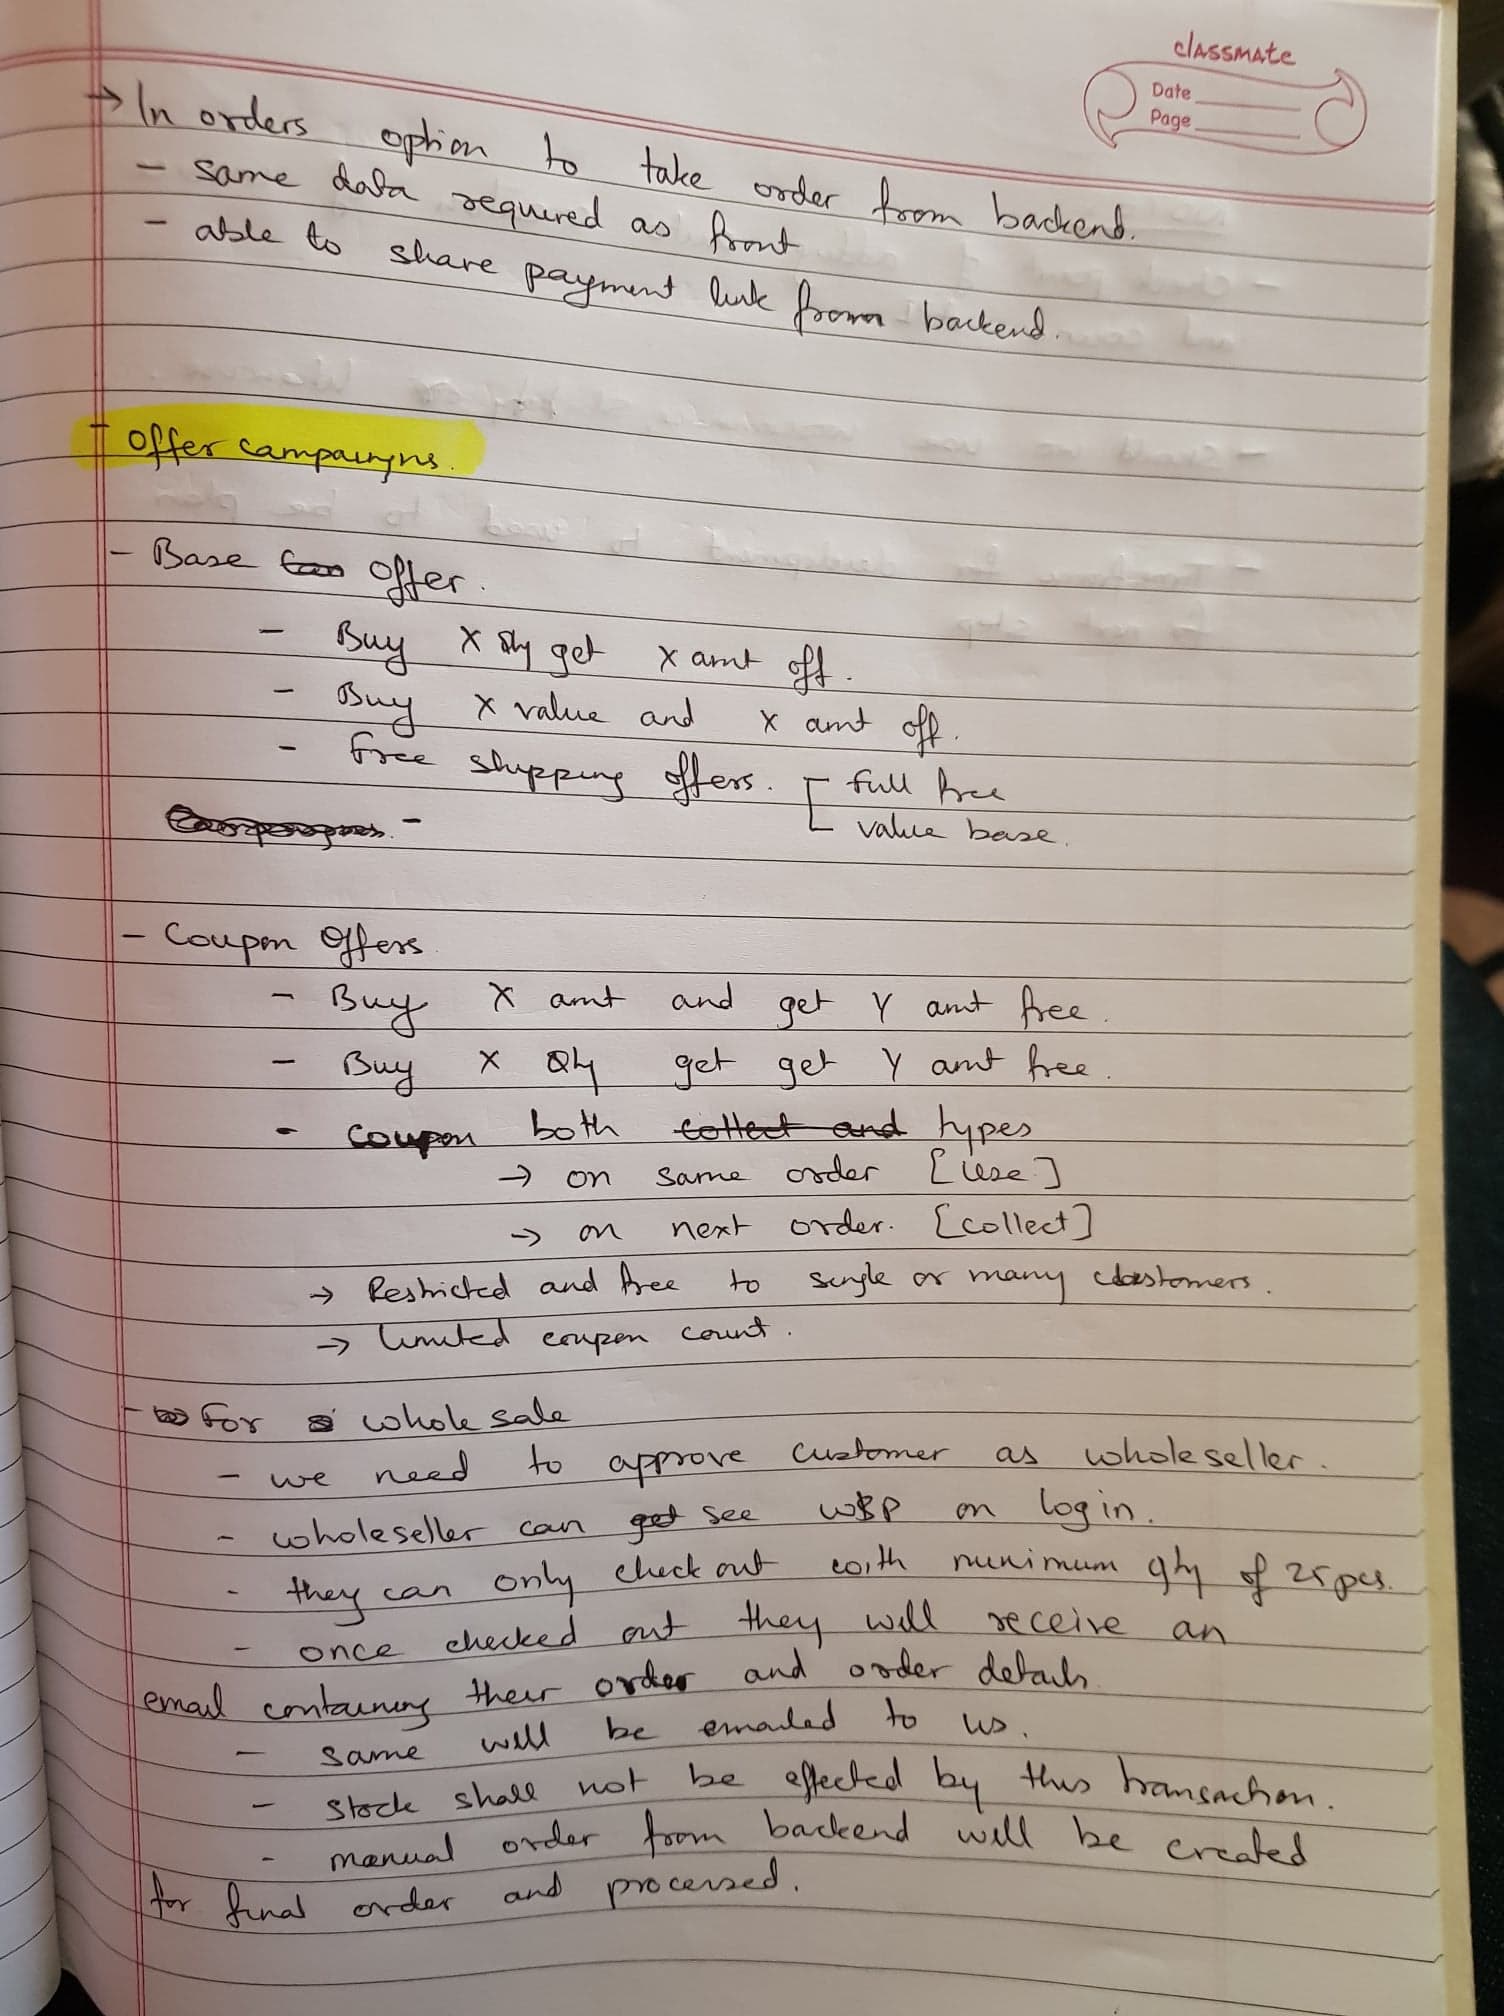 classmate
Date
Page
→ In orders option to take order from backend.
- same data required as front
- able to share payment link from backend.
- Offer campaigns.
- Base Offer.
- Buy X Qty get X amt off.
- Buy X value and X amt off.
- Free shipping offers. full free
value base.
- Coupon Offers
- Buy X amt and get Y amt free.
- Buy X Qty get get Y amt free.
- Coupon both collect and types
→ on same order [use]
→ on next order. [collect]
→ Restricted and free to single or many customers.
→ limited coupon count.
- For whole sale
- we need to approve customer as wholeseller.
- wholeseller can get see WSP on login.
- they can only check out with minimum qty of 25 pcs.
- once checked out they will receive an
email containing their order and order details
- same will be emailed to us.
- stock shall not be effected by this transaction.
- manual order from backend will be created
for final order and processed.